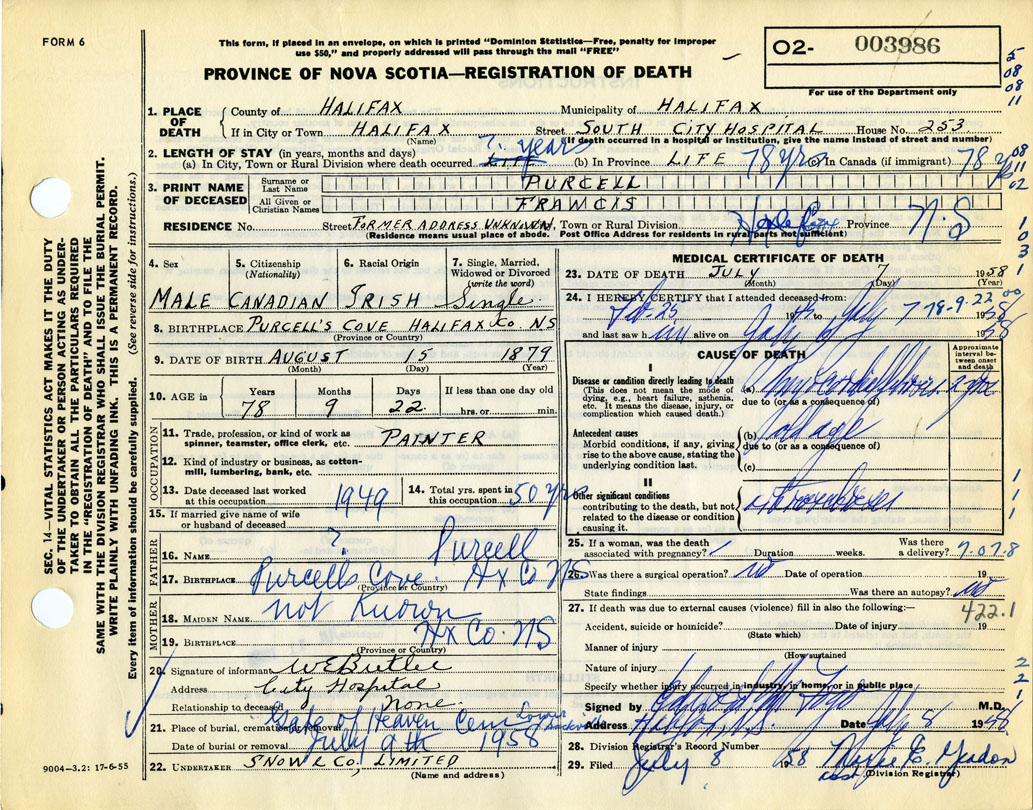 FORM 6
This form, if placed in an envelope, on which is printed "Dominion Statistics—Free, penalty for improper
use $50," and properly addressed will pass through the mail "FREE"
PROVINCE OF NOVA SCOTIA—REGISTRATION OF DEATH
02- 003986
For use of the Department only
5
08
08
11
1. PLACE OF DEATH
County of HALIFAX Municipality of HALIFAX
If in City or Town HALIFAX Street SOUTH CITY HOSPITAL House No. 253
(Name) (If death occurred in a hospital or Institution, give the name instead of street and number)
2. LENGTH OF STAY (in years, months and days) ? years
(a) In City, Town or Rural Division where death occurred LIFE (b) In Province LIFE 78 yrs (c) In Canada (if immigrant) 78 yrs
08
11
02
3. PRINT NAME OF DECEASED
Surname or Last Name PURCELL
All Given or Christian Names FRANCIS
RESIDENCE No. Street FORMER ADDRESS UNKNOWN, Town or Rural Division Province N.S
(Residence means usual place of abode. Post Office Address for residents in rural parts not sufficient)
1
0
3
1
4. Sex
MALE
5. Citizenship
(Nationality)
CANADIAN
6. Racial Origin
IRISH
7. Single, Married,
Widowed or Divorced
(write the word)
Single
8. BIRTHPLACE PURCELL'S COVE HALIFAX CO NS
(Province or Country)
9. DATE OF BIRTH AUGUST 15 1879
(Month) (Day) (Year)
10. AGE in
Years Months Days If less than one day old
78 9 22 hrs. or min.
OCCUPATION
11. Trade, profession, or kind of work as
spinner, teamster, office clerk, etc. PAINTER
12. Kind of industry or business, as cotton-
mill, lumbering, bank, etc.
13. Date deceased last worked
at this occupation 1949
14. Total yrs. spent in
this occupation 50 yrs
15. If married give name of wife
or husband of deceased
FATHER
16. NAME ? Purcell
17. BIRTHPLACE Purcells Cove. Hx Co NS
(Province or Country)
MOTHER
18. MAIDEN NAME not Known
19. BIRTHPLACE Hx Co. NS
(Province or Country)
20. Signature of informant W E Butler
Address City Hospital
Relationship to deceased none.
21. Place of burial, cremation or removal Gate of Heaven Cem Lower Sackville
Date of burial or removal July 9th 1958
22. UNDERTAKER SNOW & CO, LIMITED
(Name and address)
MEDICAL CERTIFICATE OF DEATH
23. DATE OF DEATH JULY 7 1958
(Month) (Day) (Year)
24. I HEREBY CERTIFY that I attended deceased from:
Feb-25 19 to July 7 1958
78-9-22 00
and last saw h im alive on July 7 1958
CAUSE OF DEATH
Approximate
interval be-
tween onset
and death
I
Disease or condition directly leading to death
(This does not mean the mode of
dying, e.g., heart failure, asthenia,
etc. It means the disease, injury, or
complication which caused death.)
(a)
due to (or as a consequence of)
Antecedent causes
Morbid conditions, if any, giving
rise to the above cause, stating the
underlying condition last.
(b) old age
due to (or as a consequence of)
(c)
II
Other significant conditions
contributing to the death, but not
related to the disease or condition
causing it.
1
1
1
25. If a woman, was the death
associated with pregnancy? Duration weeks. Was there
a delivery? 7.07.8
26. Was there a surgical operation? no Date of operation 19
State findings Was there an autopsy? no
27. If death was due to external causes (violence) fill in also the following:—
422.1
Accident, suicide or homicide? Date of injury 19
(State which)
Manner of injury
(How sustained
Nature of injury
Specify whether injury occurred in industry, in home, or in public place
2
2
1
Signed by M.D.
Address Halifax, N.S. Date July 8 1958
28. Division Registrar's Record Number
29. Filed July 8 1958
(Division Registrar)
9004—3.2: 17-6-55
SEC. 14—VITAL STATISTICS ACT MAKES IT THE DUTY
OF THE UNDERTAKER OR PERSON ACTING AS UNDER-
TAKER TO OBTAIN ALL THE PARTICULARS REQUIRED
IN THE "REGISTRATION OF DEATH" AND TO FILE THE
SAME WITH THE DIVISION REGISTRAR WHO SHALL ISSUE THE BURIAL PERMIT.
WRITE PLAINLY WITH UNFADING INK. THIS IS A PERMANENT RECORD.
Every item of information should be carefully supplied. (See reverse side for instructions.)